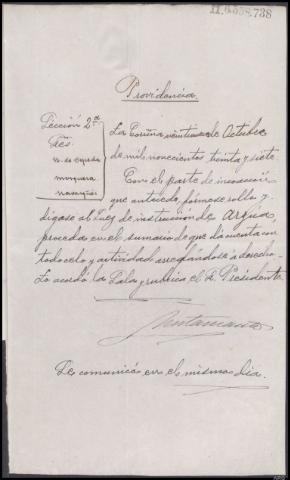 11.6.558.738
Providencia
Sección 2ª
La Coruña veintiuno de Octubre
de mil novecientos treinta y siete
Con el parte de incoación
que antecede, fórmese rollo y
digase al Juez de instrucción de Arzúa,
proceda en el sumario de que dá cuenta con
todo celo y actividad arreglándose a derecho.
Lo acordó la Sala y rubrica el Sr. Presidente
Se comunicó en el mismo dia.